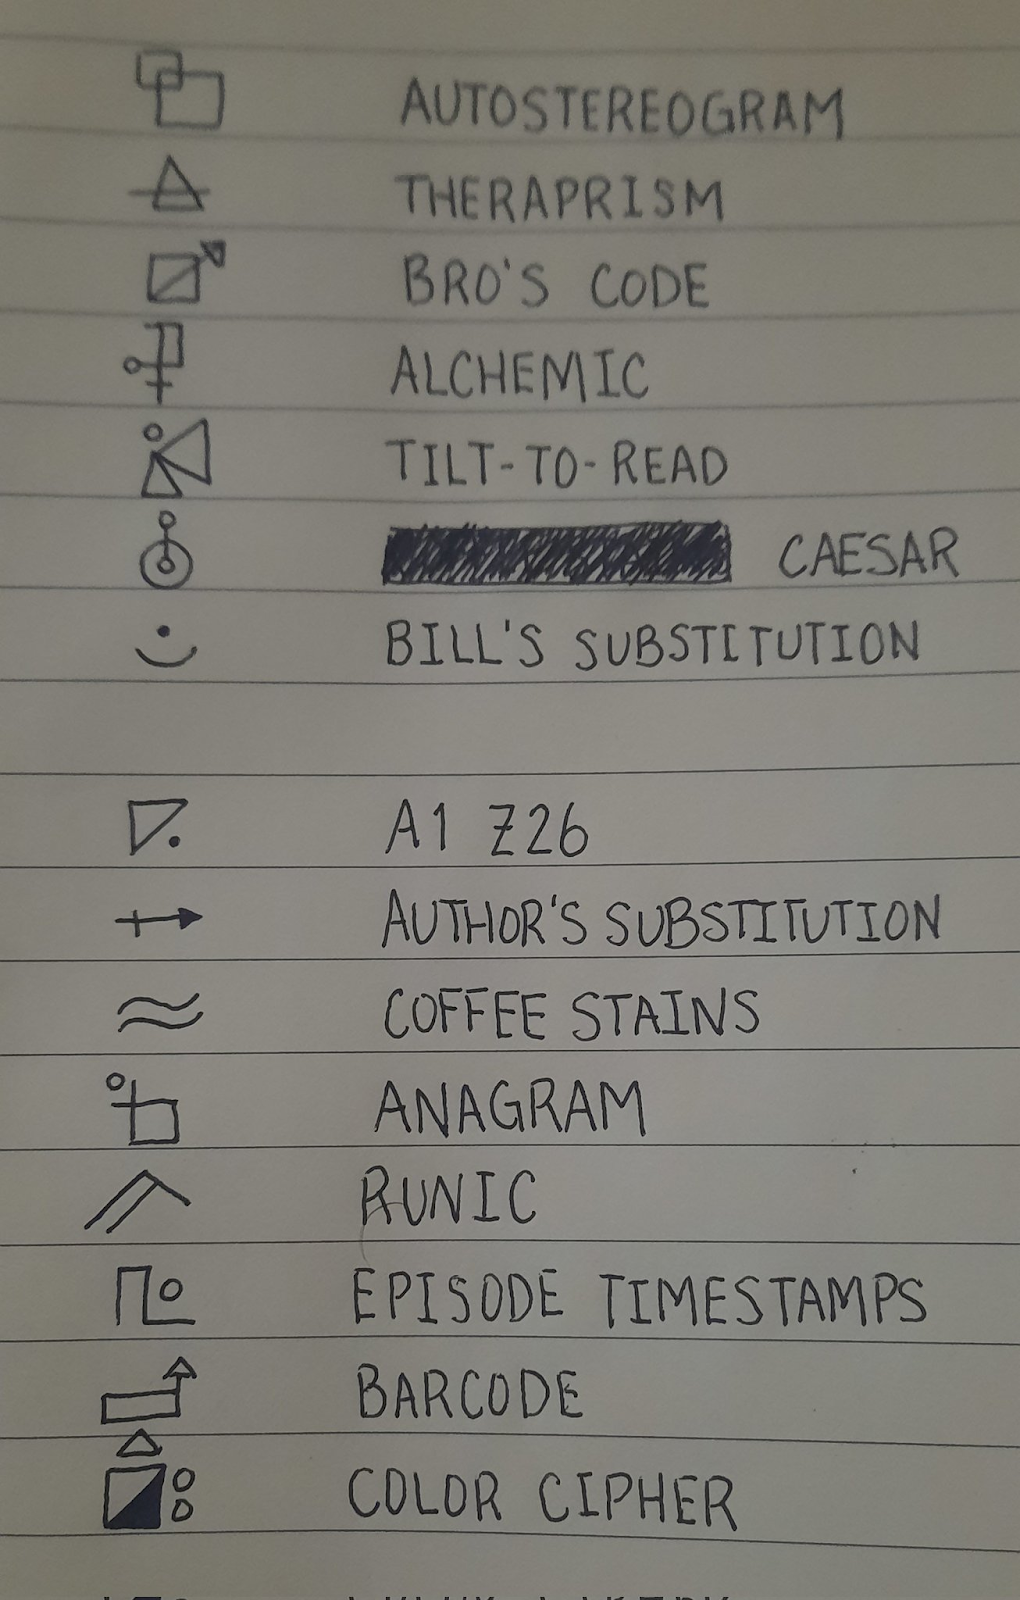 AUTOSTEREOGRAM
THERAPRISM
BRO'S CODE
ALCHEMIC
TILT-TO-READ
CAESAR
BILL'S SUBSTITUTION
A1 Z26
AUTHOR'S SUBSTITUTION
COFFEE STAINS
ANAGRAM
RUNIC
EPISODE TIMESTAMPS
BARCODE
COLOR CIPHER